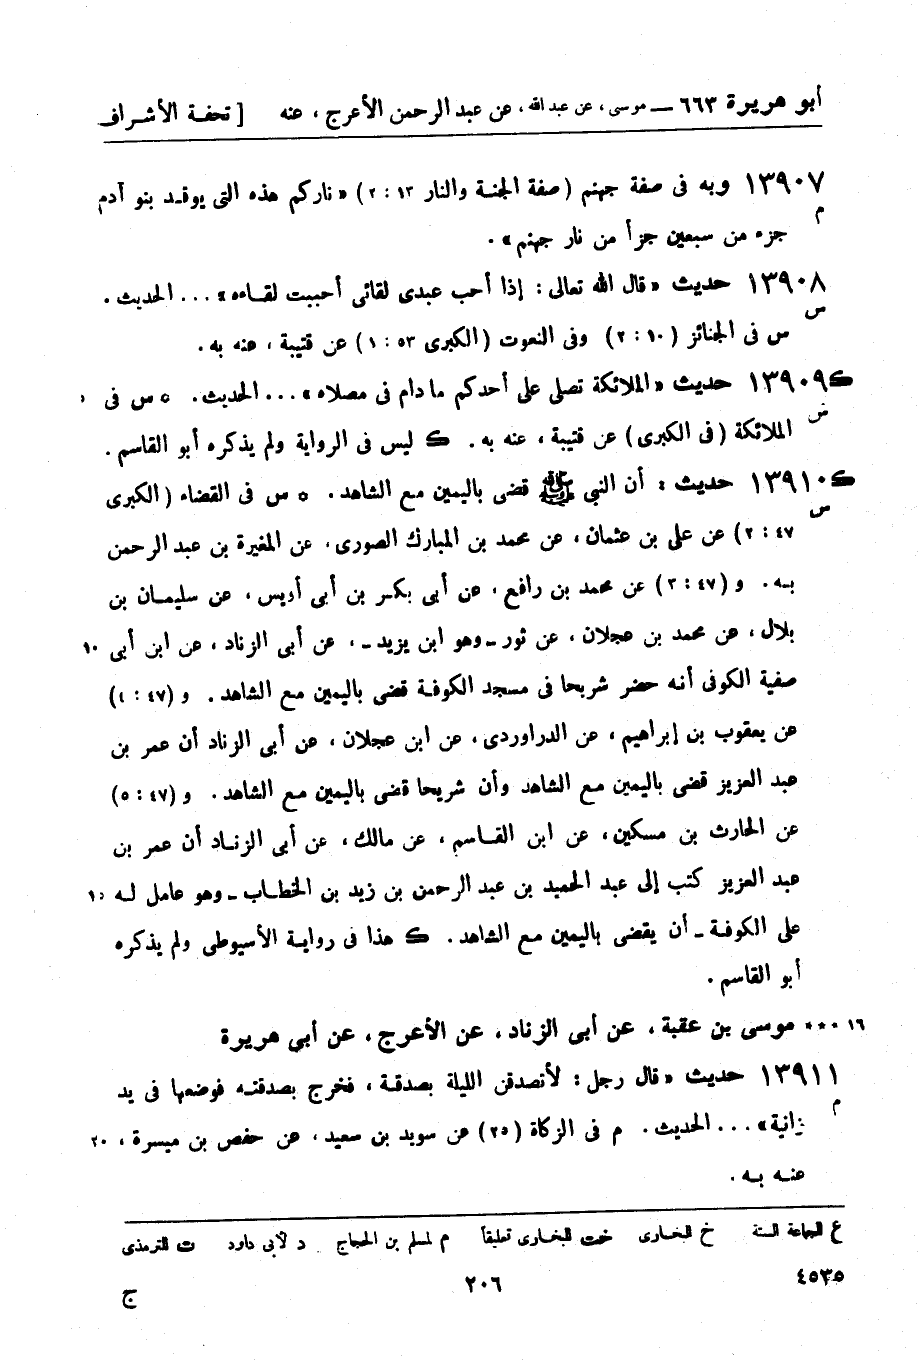 أبو هريرة ٦٦٣ — موسى، عن عبد الله، عن عبد الرحمن الأعرج، عنه [ تحفة الأشراف
١٣٩٠٧ وبه فى صفة جهنم (صفة الجنة والنار ١٣ : ٢) «ناركم هذه التى يوقد بنو آدم
م
جزء من سبعين جزأ من نار جهنم».
١٣٩٠٨ حديث «قال الله تعالى: إذا أحب عبدى لقائى أحببت لقاءه» ... الحديث.
س
س فى الجنائز (١٠ : ٢) وفى النعوت (الكبرى ٥٣ : ١) عن قتيبة، عنه به.
ك١٣٩٠٩ حديث «الملائكة تصلى على أحدكم ما دام فى مصلاه» ... الحديث. ○ س فى
س
الملائكة (فى الكبرى) عن قتيبة، عنه به. ك ليس فى الرواية ولم يذكره أبو القاسم.
ك١٣٩١٠ حديث: أن النبى ﷺ قضى باليمين مع الشاهد. ○ س فى القضاء (الكبرى
س
٤٧ : ٢) عن على بن عثمان، عن محمد بن المبارك الصورى، عن المغيرة بن عبد الرحمن
به. و (٤٧ : ٣) عن محمد بن رافع، عن أبى بكر بن أبى أويس، عن سليمان بن
بلال، عن محمد بن عجلان، عن ثور ـ وهو ابن يزيد ـ، عن أبى الزناد، عن ابن أبى ١٠
صفية الكوفى أنه حضر شريحا فى مسجد الكوفة قضى باليمين مع الشاهد. و (٤٧ : ٤)
عن يعقوب بن إبراهيم، عن الدراوردى، عن ابن عجلان، عن أبى الزناد أن عمر بن
عبد العزيز قضى باليمين مع الشاهد وأن شريحا قضى باليمين مع الشاهد. و (٤٧ : ٥)
عن الحارث بن مسكين، عن ابن القاسم، عن مالك، عن أبى الزناد أن عمر بن
عبد العزيز كتب إلى عبد الحميد بن عبد الرحمن بن زيد بن الخطاب ـ وهو عامل له ١٥
على الكوفة ـ أن يقضى باليمين مع الشاهد. ك هذا فى رواية الأسيوطى ولم يذكره
أبو القاسم.
١٦ *** موسى بن عقبة، عن أبى الزناد، عن الأعرج، عن أبي هريرة
١٣٩١١ حديث «قال رجل: لأتصدقن الليلة بصدقة، فخرج بصدقته فوضعها فى يد
م
زانية» ... الحديث. م فى الزكاة (٢٥) عن سويد بن سعيد، عن حفص بن ميسرة، ٢٠
عنه به.
ع للجماعة الستة خ للبخارى خت للبخارى تعليقاً م لمسلم بن الحجاج د لأبى داود ت للترمذى
٤٥٣٥ ٢٠٦ ج